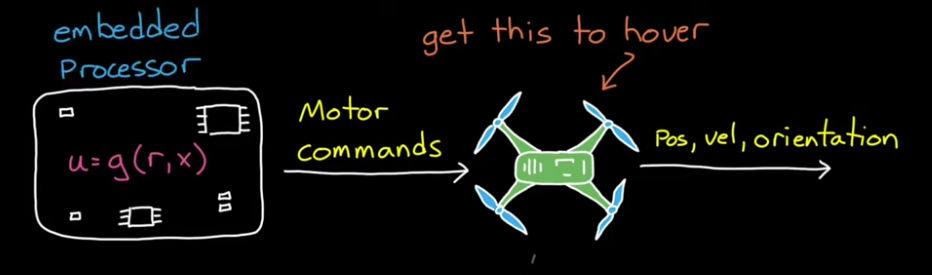 embedded
Processor
u=g(r,x)
Motor
commands
get this to hover
Pos, vel, orientation